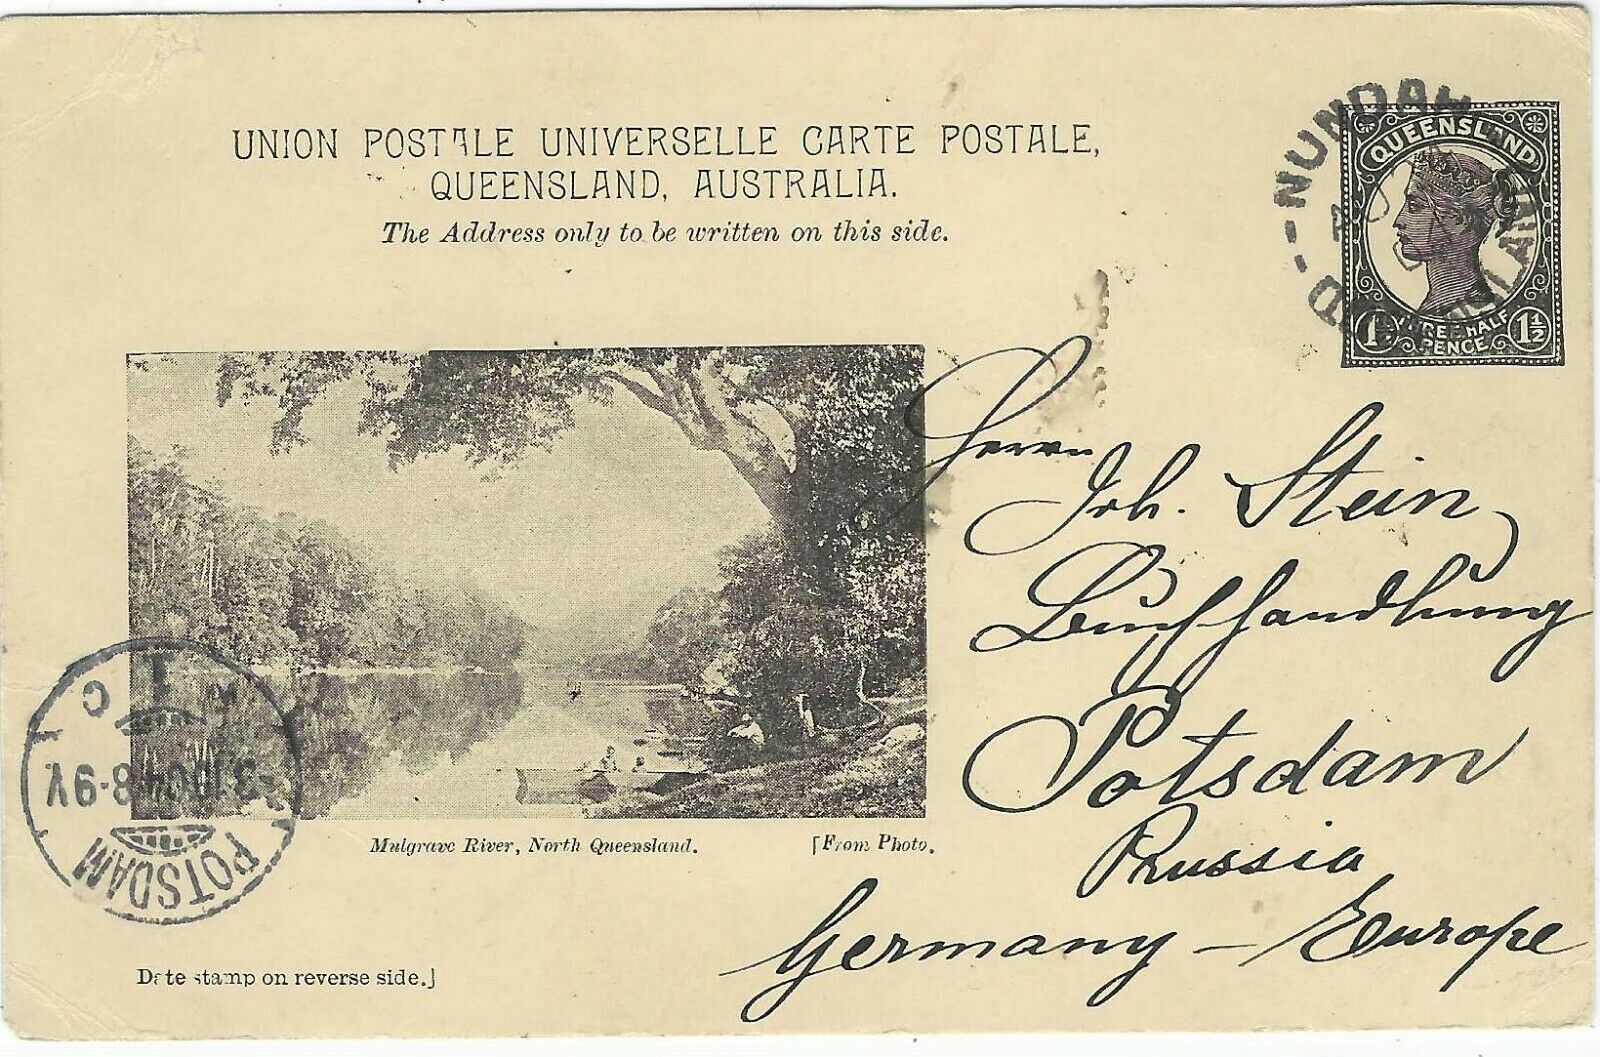 UNION POSTALE UNIVERSELLE CARTE POSTALE,
QUEENSLAND, AUSTRALIA.
The Address only to be written on this side.
NUNDAH
QUEENSLAND
QUEENSLAND
THREE HALF
PENCE
1½
1½
Herrn
Joh. Stein,
Buchhandlung
Potsdam
Prussia
Germany - Europe
Mulgrave River, North Queensland.
[From Photo.
POTSDAM
1
C
3.10.04.8-9V.
Date stamp on reverse side.]